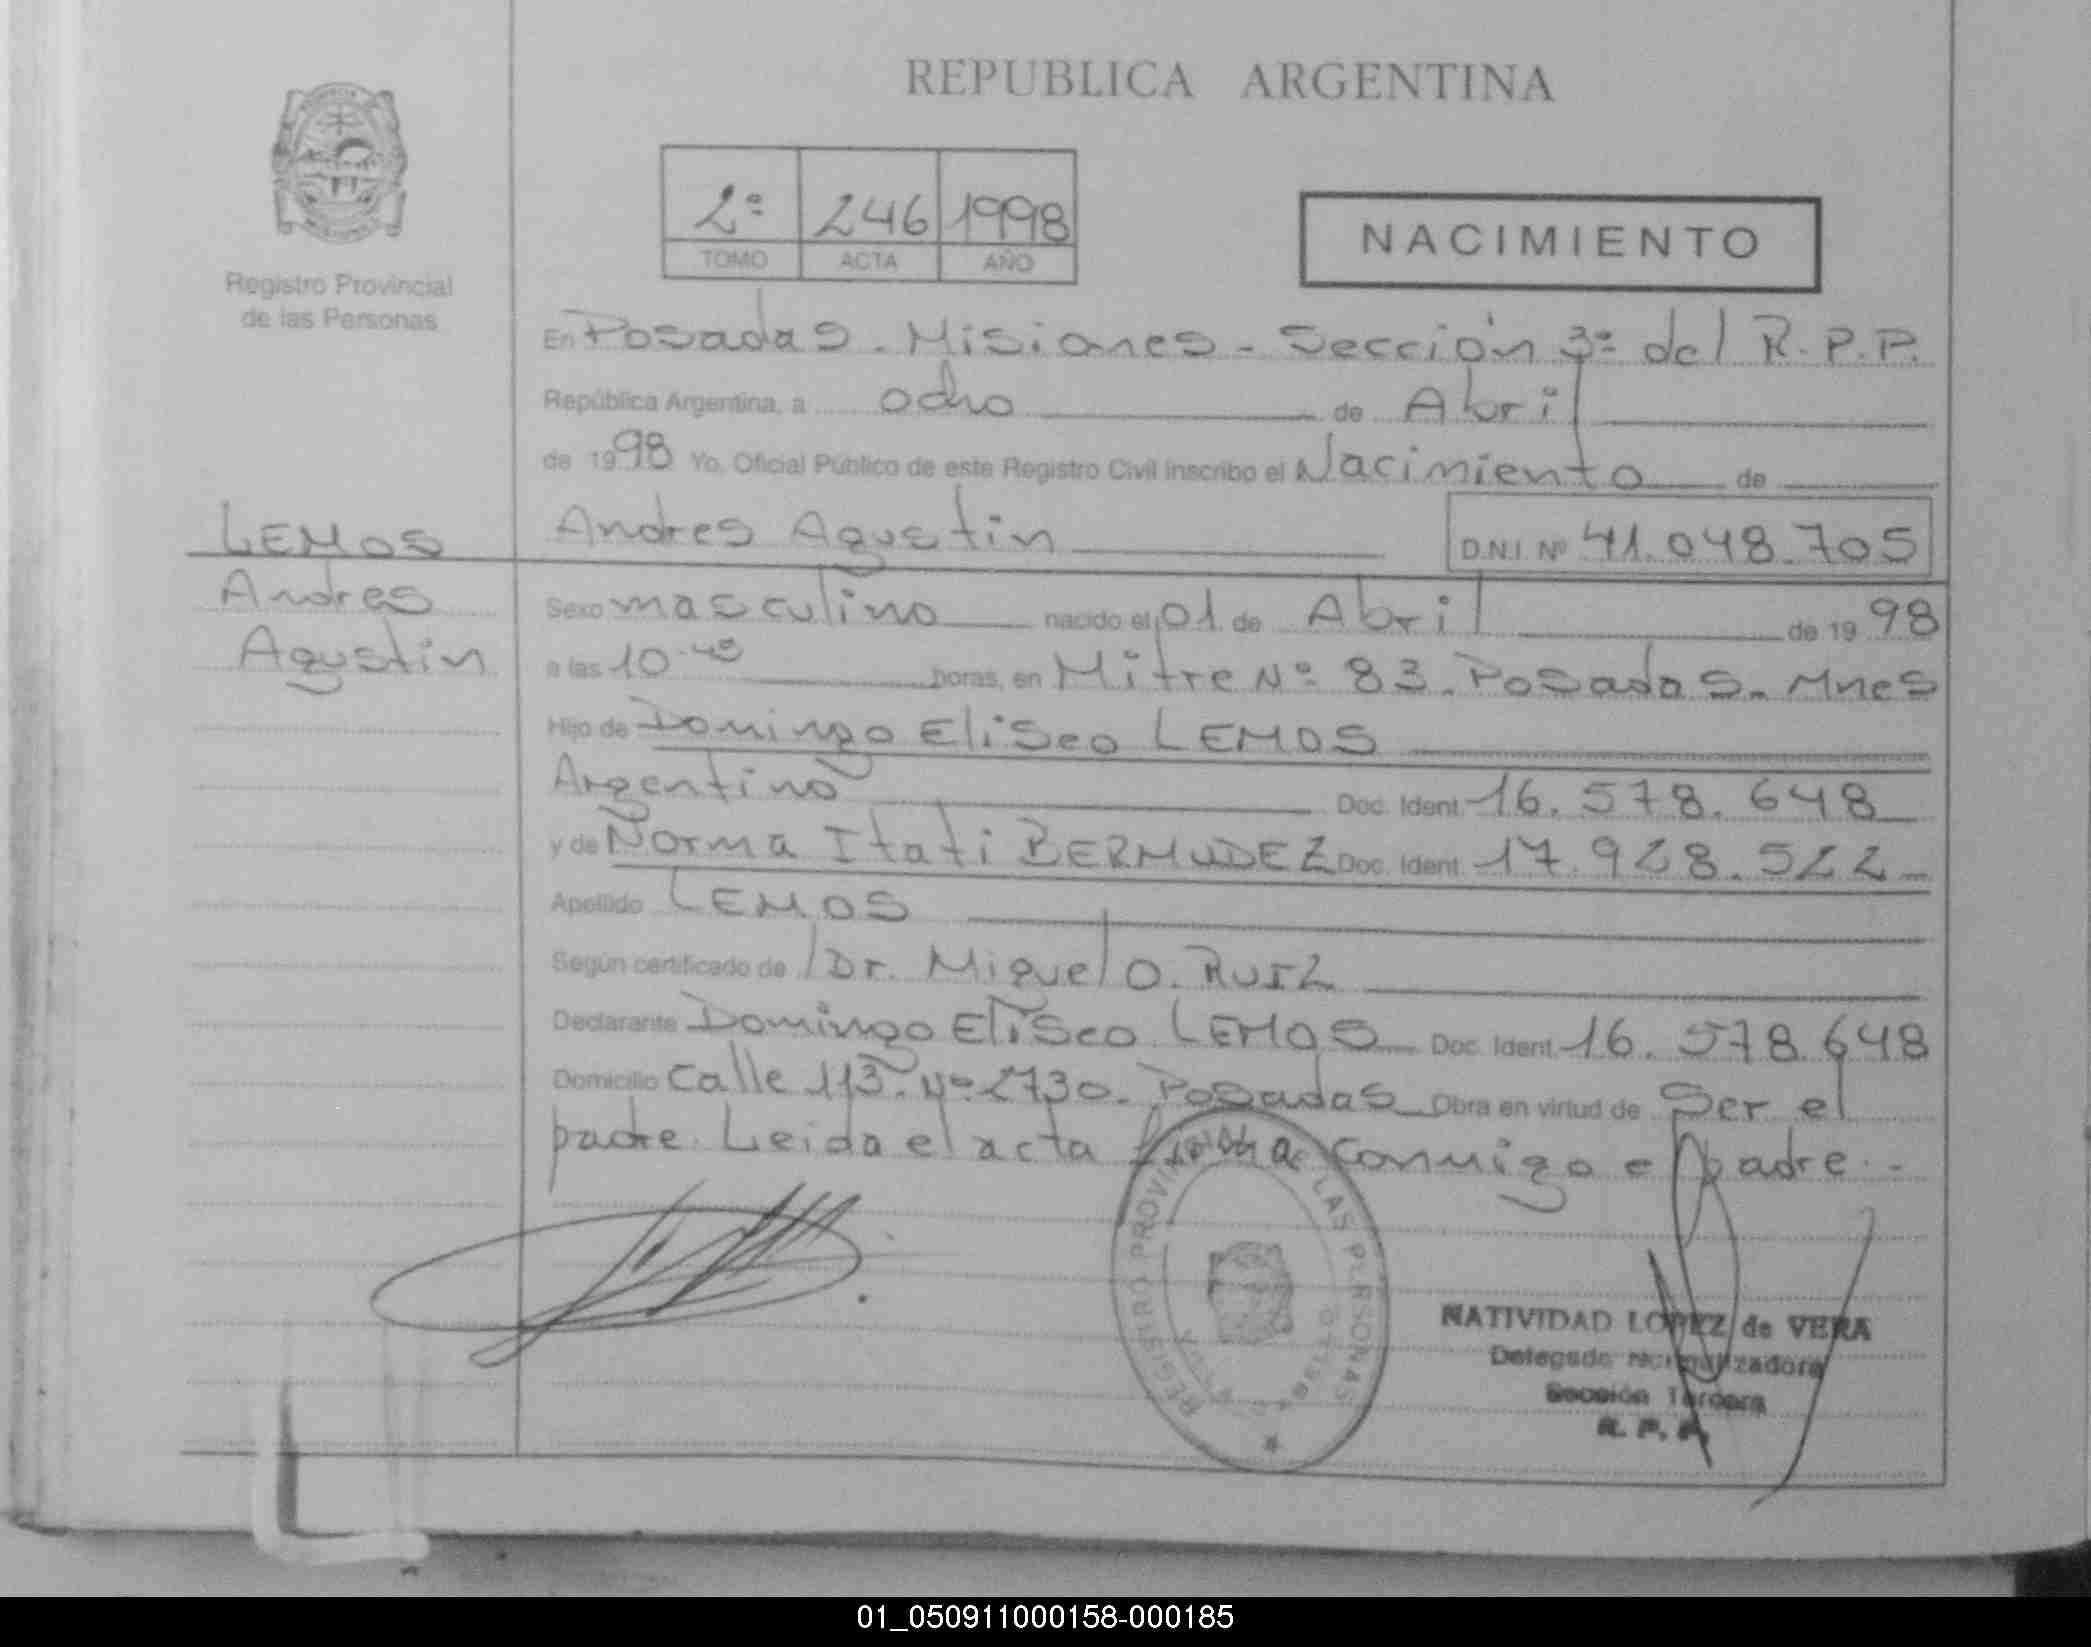 REPUBLICA ARGENTINA
2º 246 1998
TOMO ACTA AÑO
NACIMIENTO
Registro Provincial
de las Personas
En Posadas - Misiones - Sección 3º del R.P.P.
República Argentina, a ocho de Abril
de 1998 Yo, Oficial Público de este Registro Civil inscribo el Nacimiento de
LEMOS
Andres
Agustin
Andres Agustin D.N.I. Nº 41.048.705
Sexo masculino nacido el 01 de Abril de 1998
a las 10.45 horas, en Mitre Nº 83. Posadas - Mnes
Hijo de Domingo Eliseo LEMOS
Argentino Doc. Ident. 16.578.648
y de Norma Itati BERMUDEZ Doc. Ident. 17.928.522
Apellido LEMOS
Según certificado de Dr. Miguel O. RUIZ
Declarante Domingo Eliseo LEMOS Doc. Ident. 16.578.648
Domicilio Calle 113. Nº 2730. Posadas Obra en virtud de Ser el
padre. Leida el acta firma conmigo el padre.-
REGISTRO PROVINCIAL DE LAS PERSONAS
NATIVIDAD LOPEZ de VERA
Delegada Normalizadora
Sección Tercera
R. P. P.
01_050911000158-000185